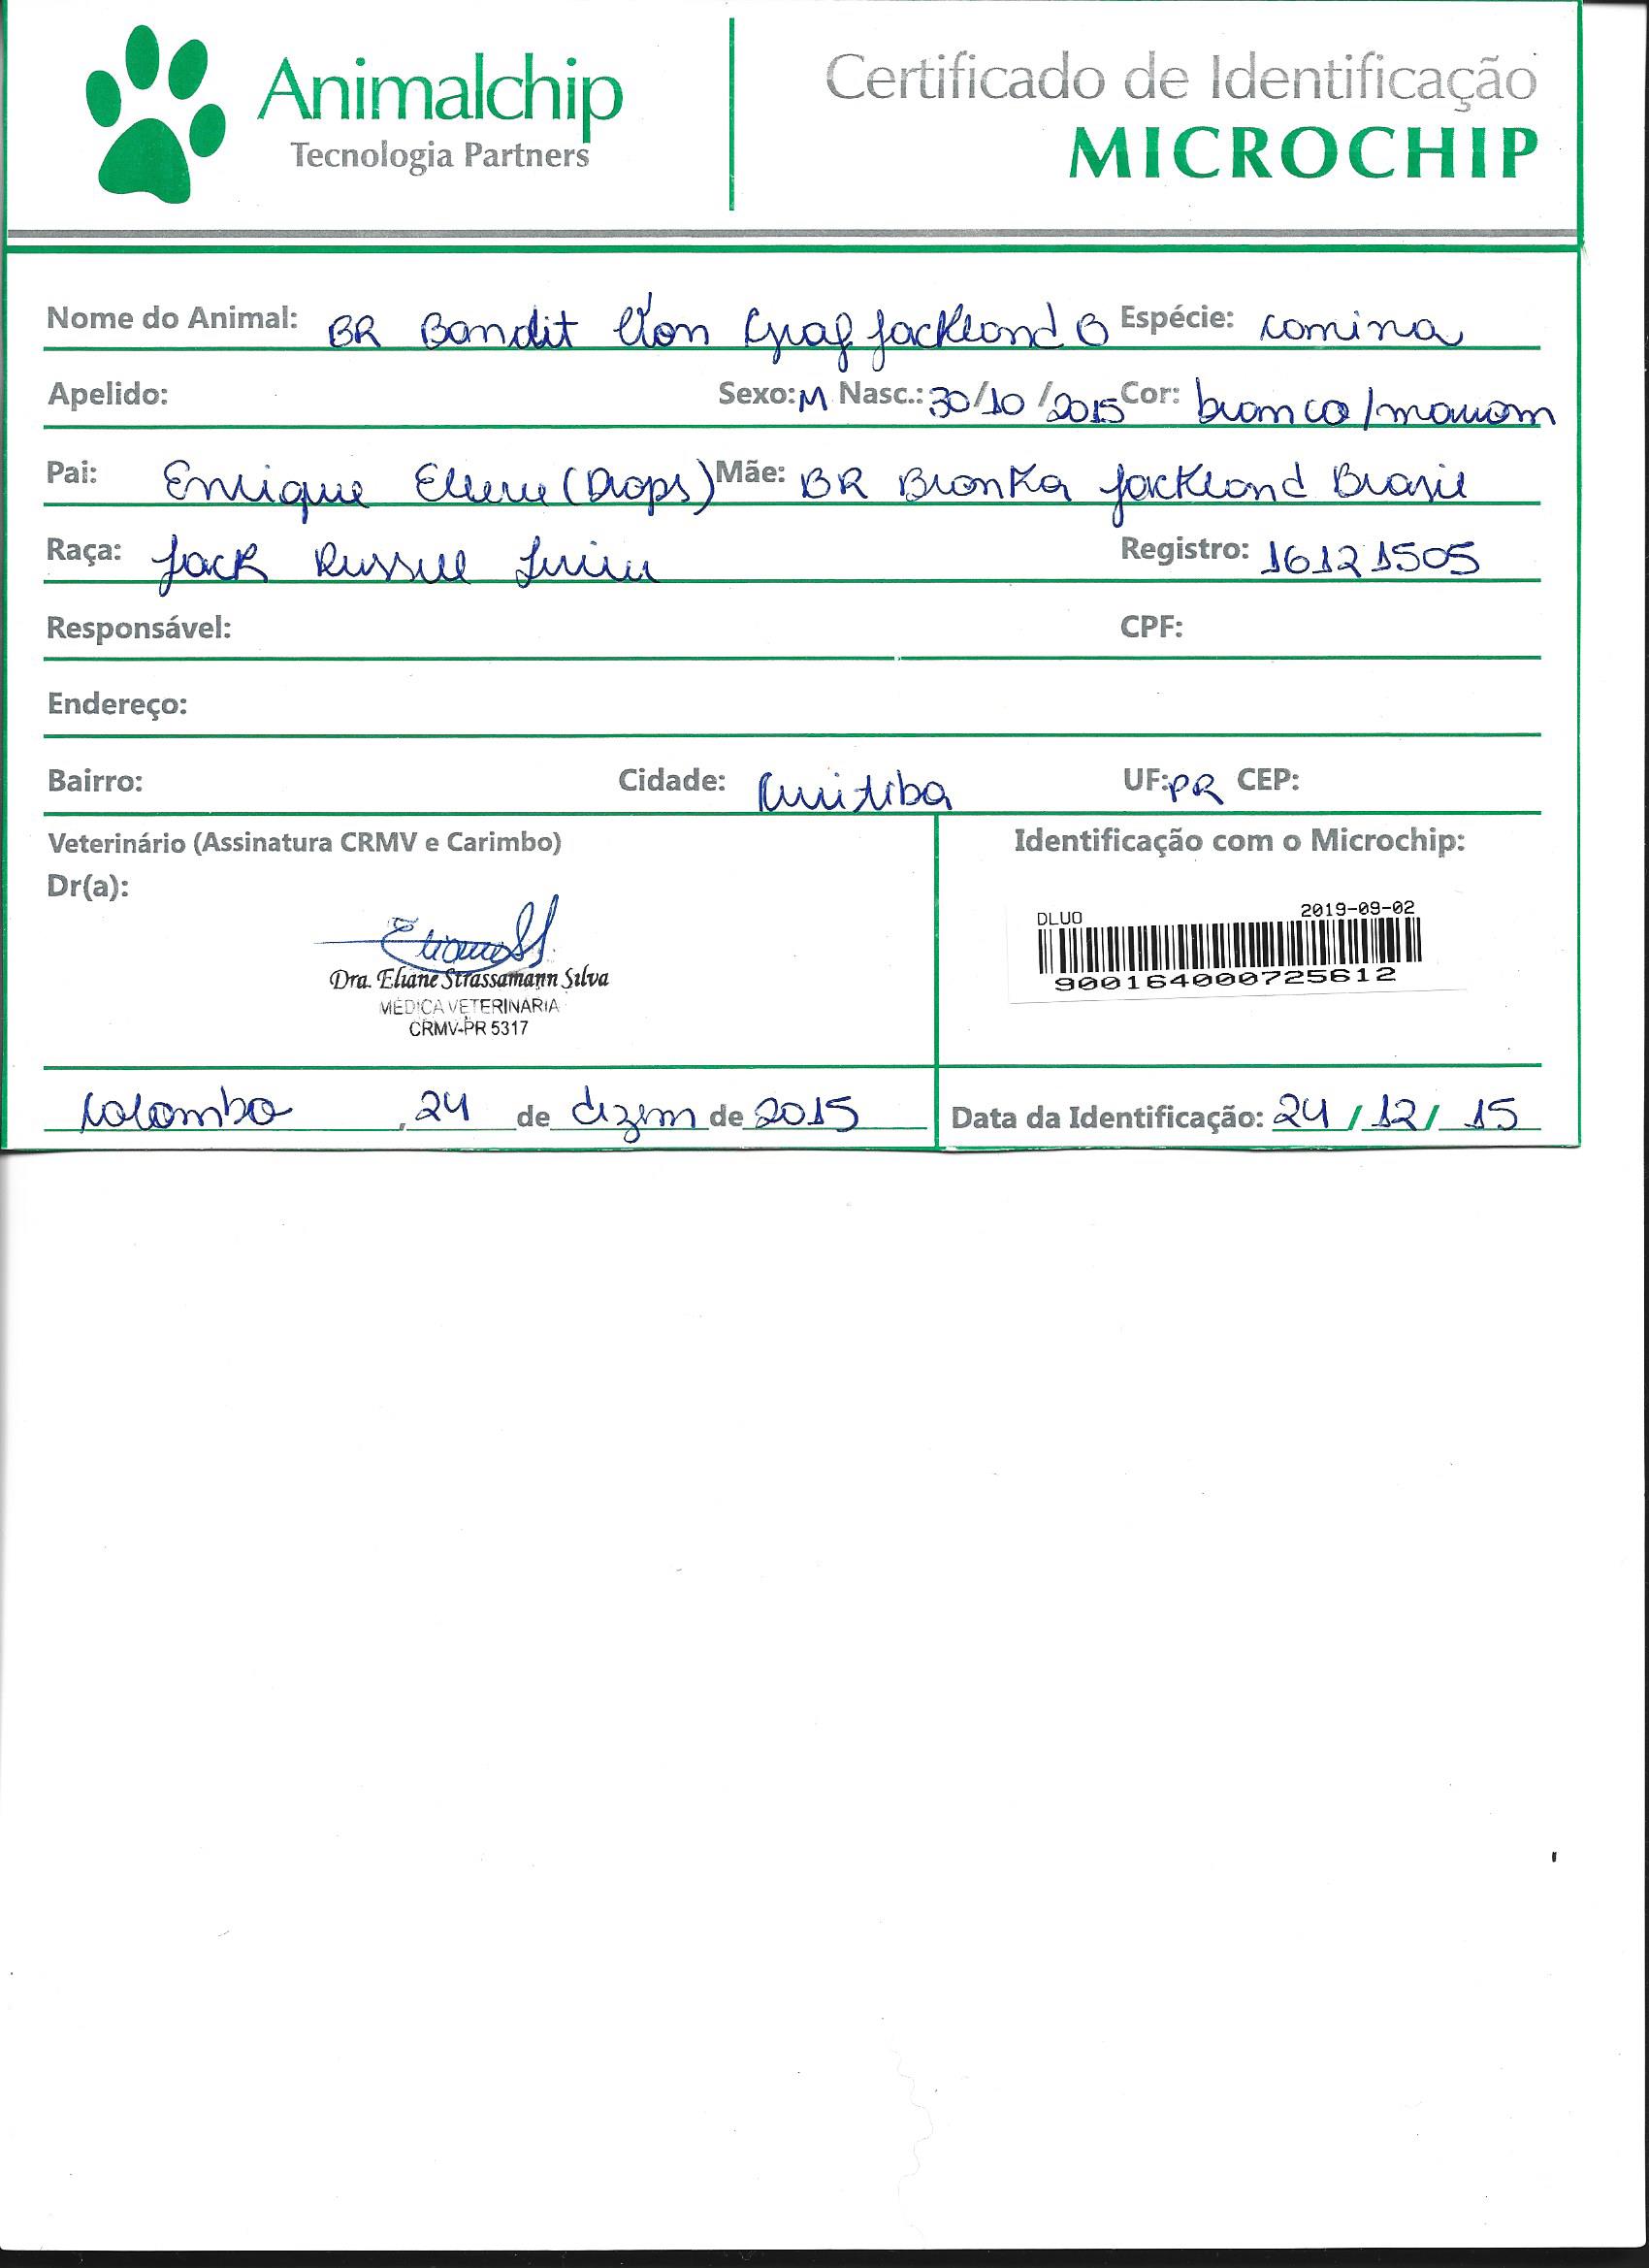 Animalchip
Tecnologia Partners
Certificado de Identificação
MICROCHIP
Nome do Animal: BR Bandit Von Graf Jackland B Espécie: canina
Apelido: Sexo: M Nasc.: 30/10/2015 Cor: branco/marrom
Pai: Enrique Ellere (Drops) Mãe: BR Bronka Jackland Brasil
Raça: Jack Russell Terrier Registro: 16121505
Responsável: CPF:
Endereço:
Bairro: Cidade: Curitiba UF: PR CEP:
Veterinário (Assinatura CRMV e Carimbo)
Dr(a):
Dra. Eliane Strassamann Silva
MÉDICA VETERINÁRIA
CRMV-PR 5317
Identificação com o Microchip:
DLUO 2019-09-02
900164000725612
Colombo, 24 de dezem de 2015
Data da Identificação: 24/12/15